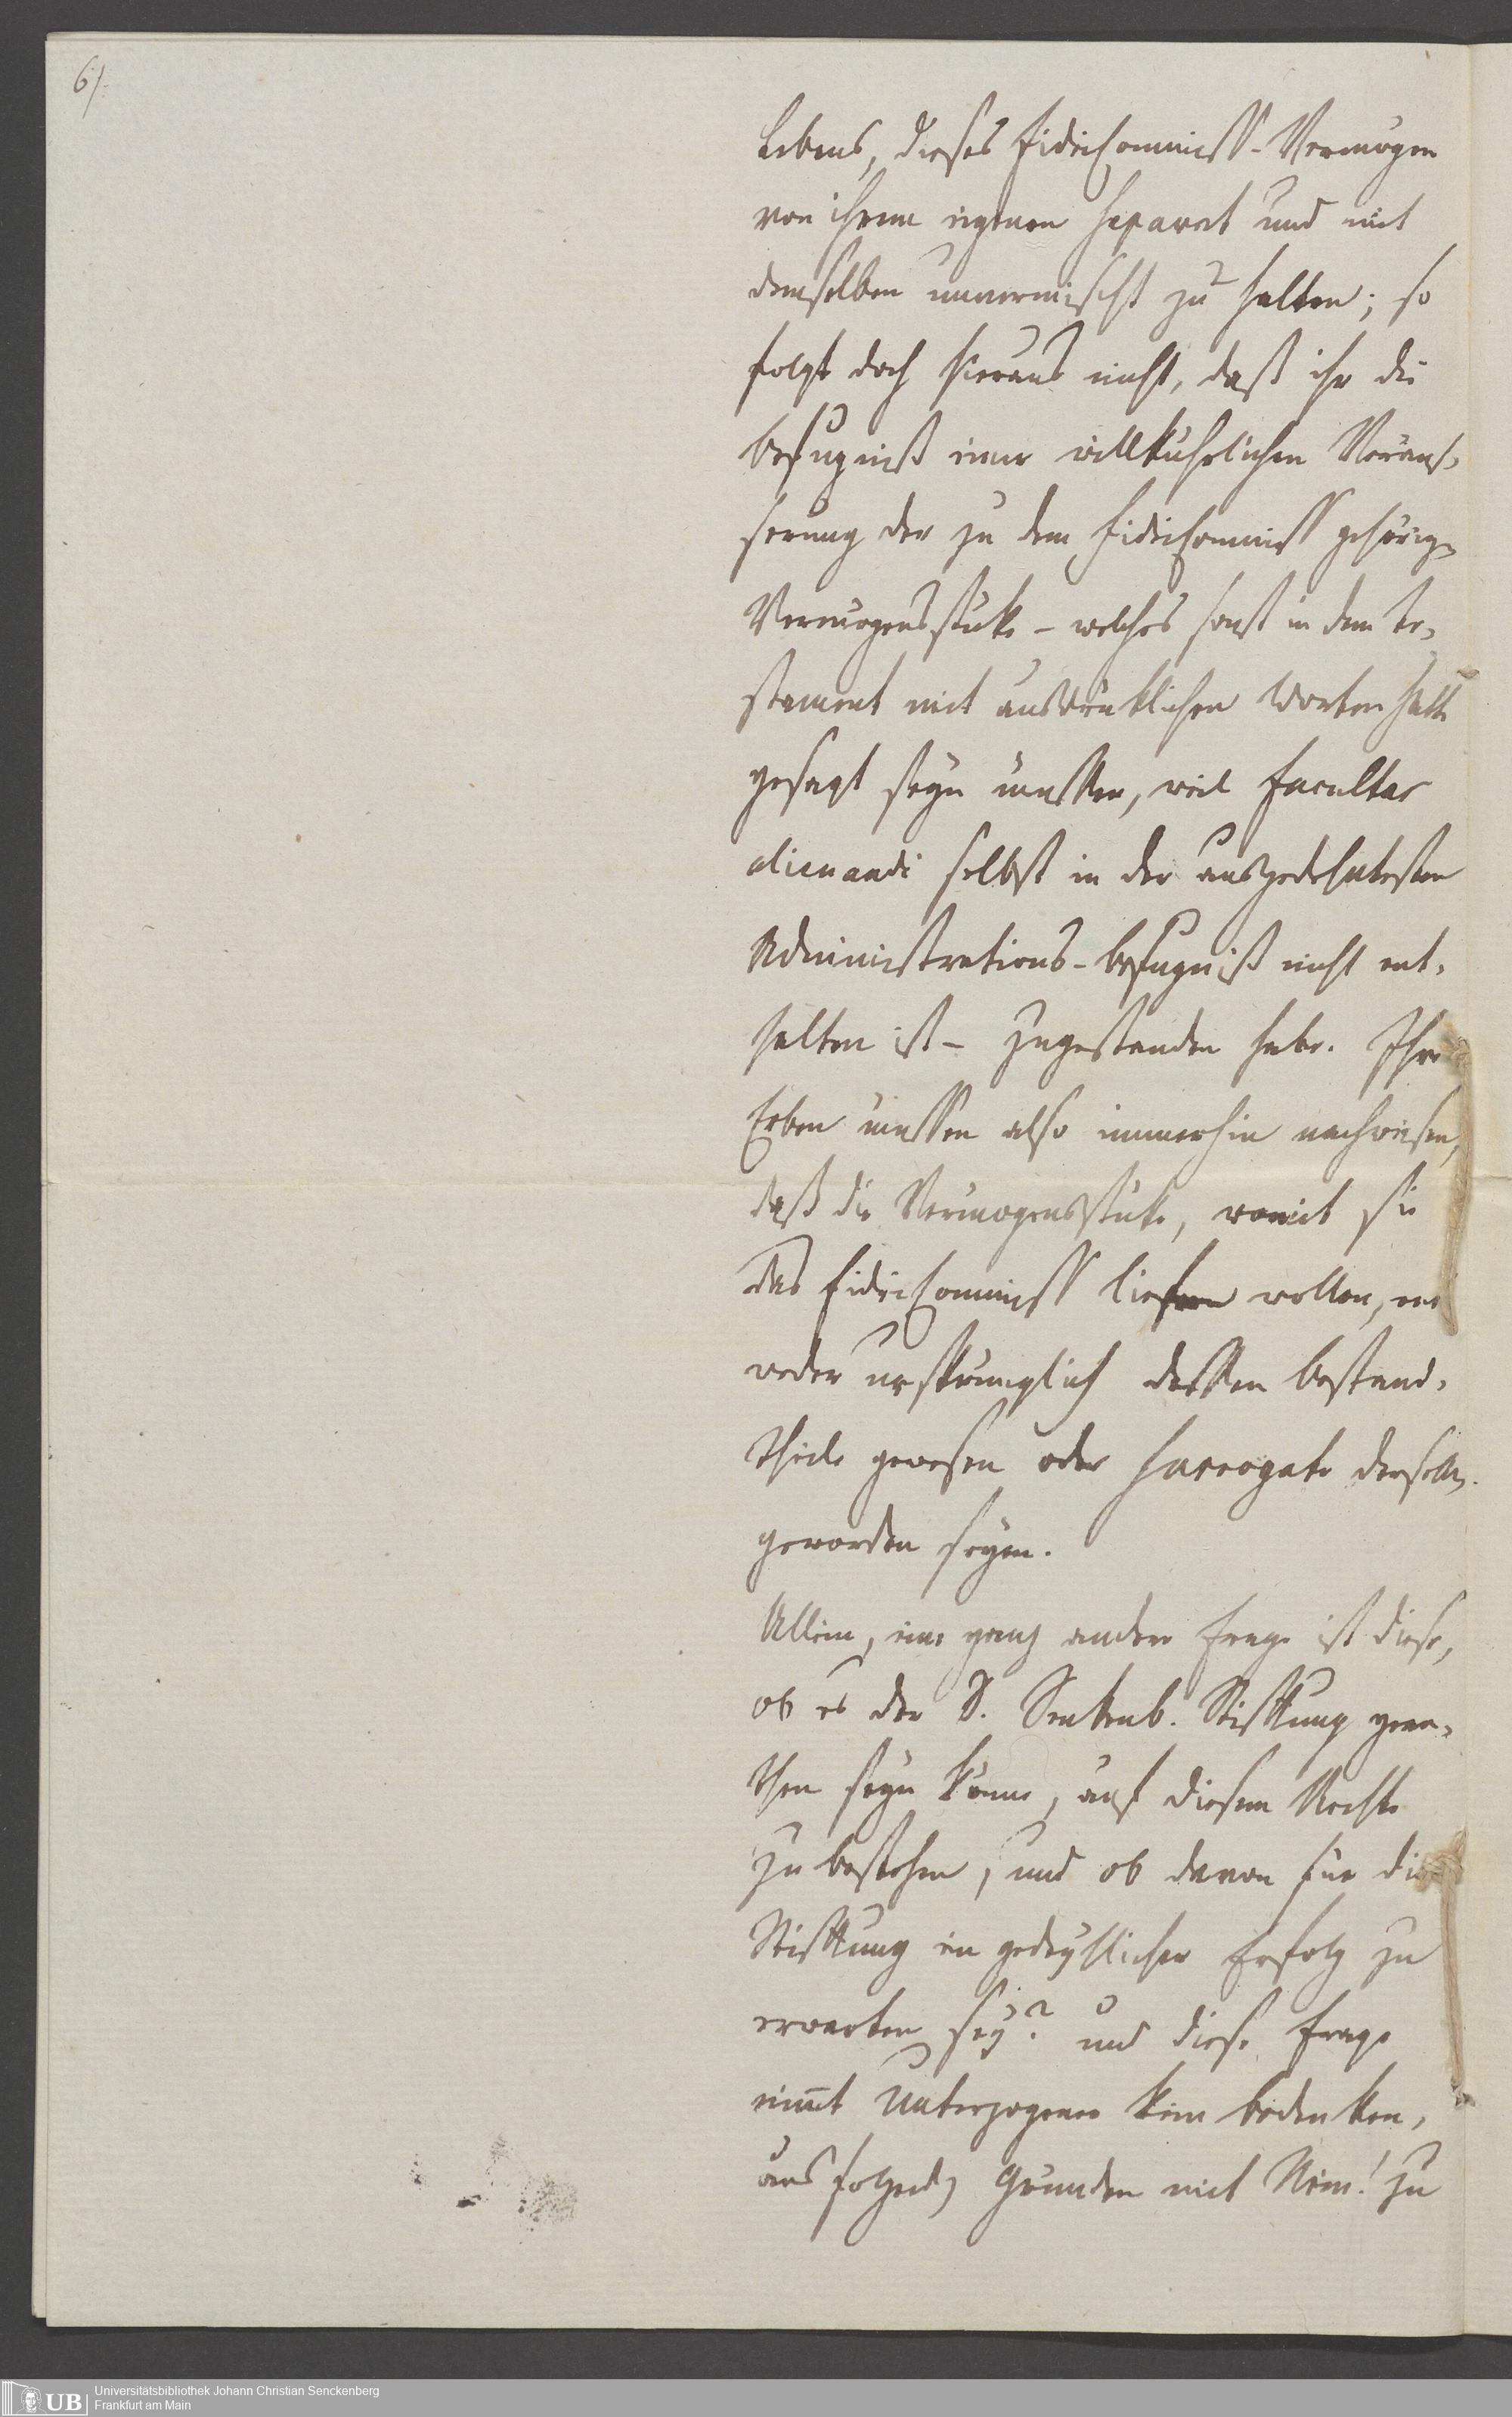 6/.
Lebens, dieses FideiCommiss-Vermögen
von ihrem eigenen separat und mit
demselben unvermischt zu halten; so
folgt doch hieraus nicht, daß ihr die
Befugniß einer willkührlichen Veräus-
serung der zu dem FideiCommiss gehörigen
Vermögensstüke – welches sonst in dem Te-
stament mit ausdrüklichen Worten hätte
gesagt seyn müssen, weil facultas
alienandi selbst in der ausgedehntesten
Administrations-Befugniß nicht ent-
halten ist – zugestanden habe. Ihre
Erben müssen also immerhin nachweisen,
daß die Vermögensstüke, womit sie
das FideiCommiss liefern wollen, ent
weder ursprünglich dessen Bestand-
theile gewesen oder Surrogate derselben
geworden seyen.
Allein, eine ganz andere Frage ist diese,
ob es der D. Senkenb. Stifftung gera-
then seyn könne, auf diesem Rechte
zu bestehen, und ob davon für die
Stifftung ein gedeyhlicher Erfolg zu
erwarten sey? und diese Frage
nimt Unterzogener kein Bedenken,
aus folgenden Gründen mit Nein! zu
UB
Universitätsbibliothek Johann Christian Senckenberg
Frankfurt am Main